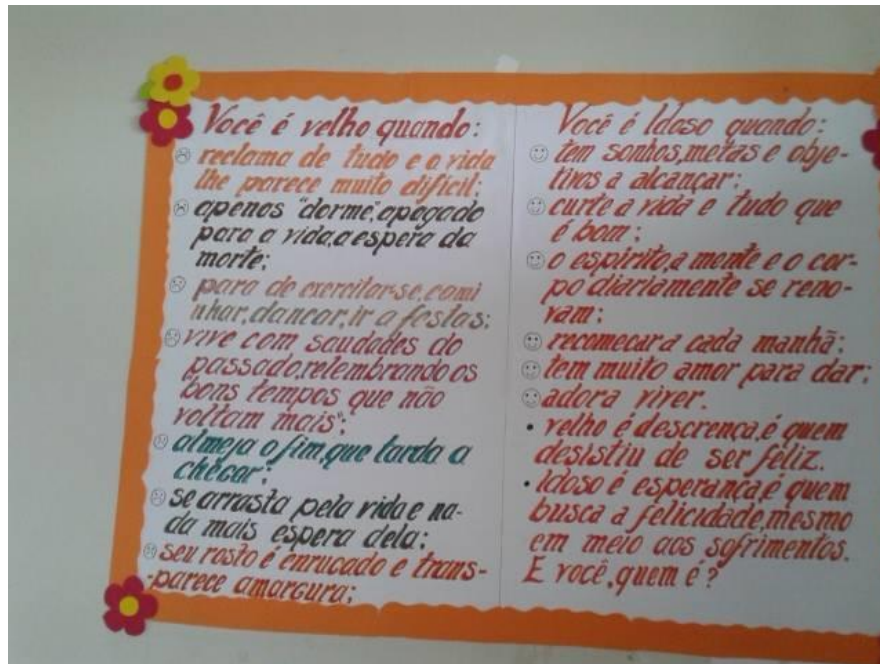 Você é velho quando:
reclama de tudo e a vida
lhe parece muito difícil;
apenas "dorme", apagado
para a vida, a espera da
morte;
para de exercitar-se, cami
nhar, dançar, ir a festas;
vive com saudades do
passado, relembrando os
bons tempos que não
voltam mais";
almeja o fim, que tarda a
chegar;
se arrasta pela vida e na-
da mais espera dela;
seu rosto é enrugado e trans-
-parece amargura;
Você é Idoso quando:
tem sonhos, metas e obje-
tivos a alcançar;
curte a vida e tudo que
é bom;
o espírito, a mente e o cor-
po diariamente se reno-
vam;
recomeçar a cada manhã;
tem muito amor para dar;
adora viver.
• velho é descrença, é quem
desistiu de ser feliz.
• Idoso é esperança, é quem
busca a felicidade, mesmo
em meio aos sofrimentos.
E você, quem é?